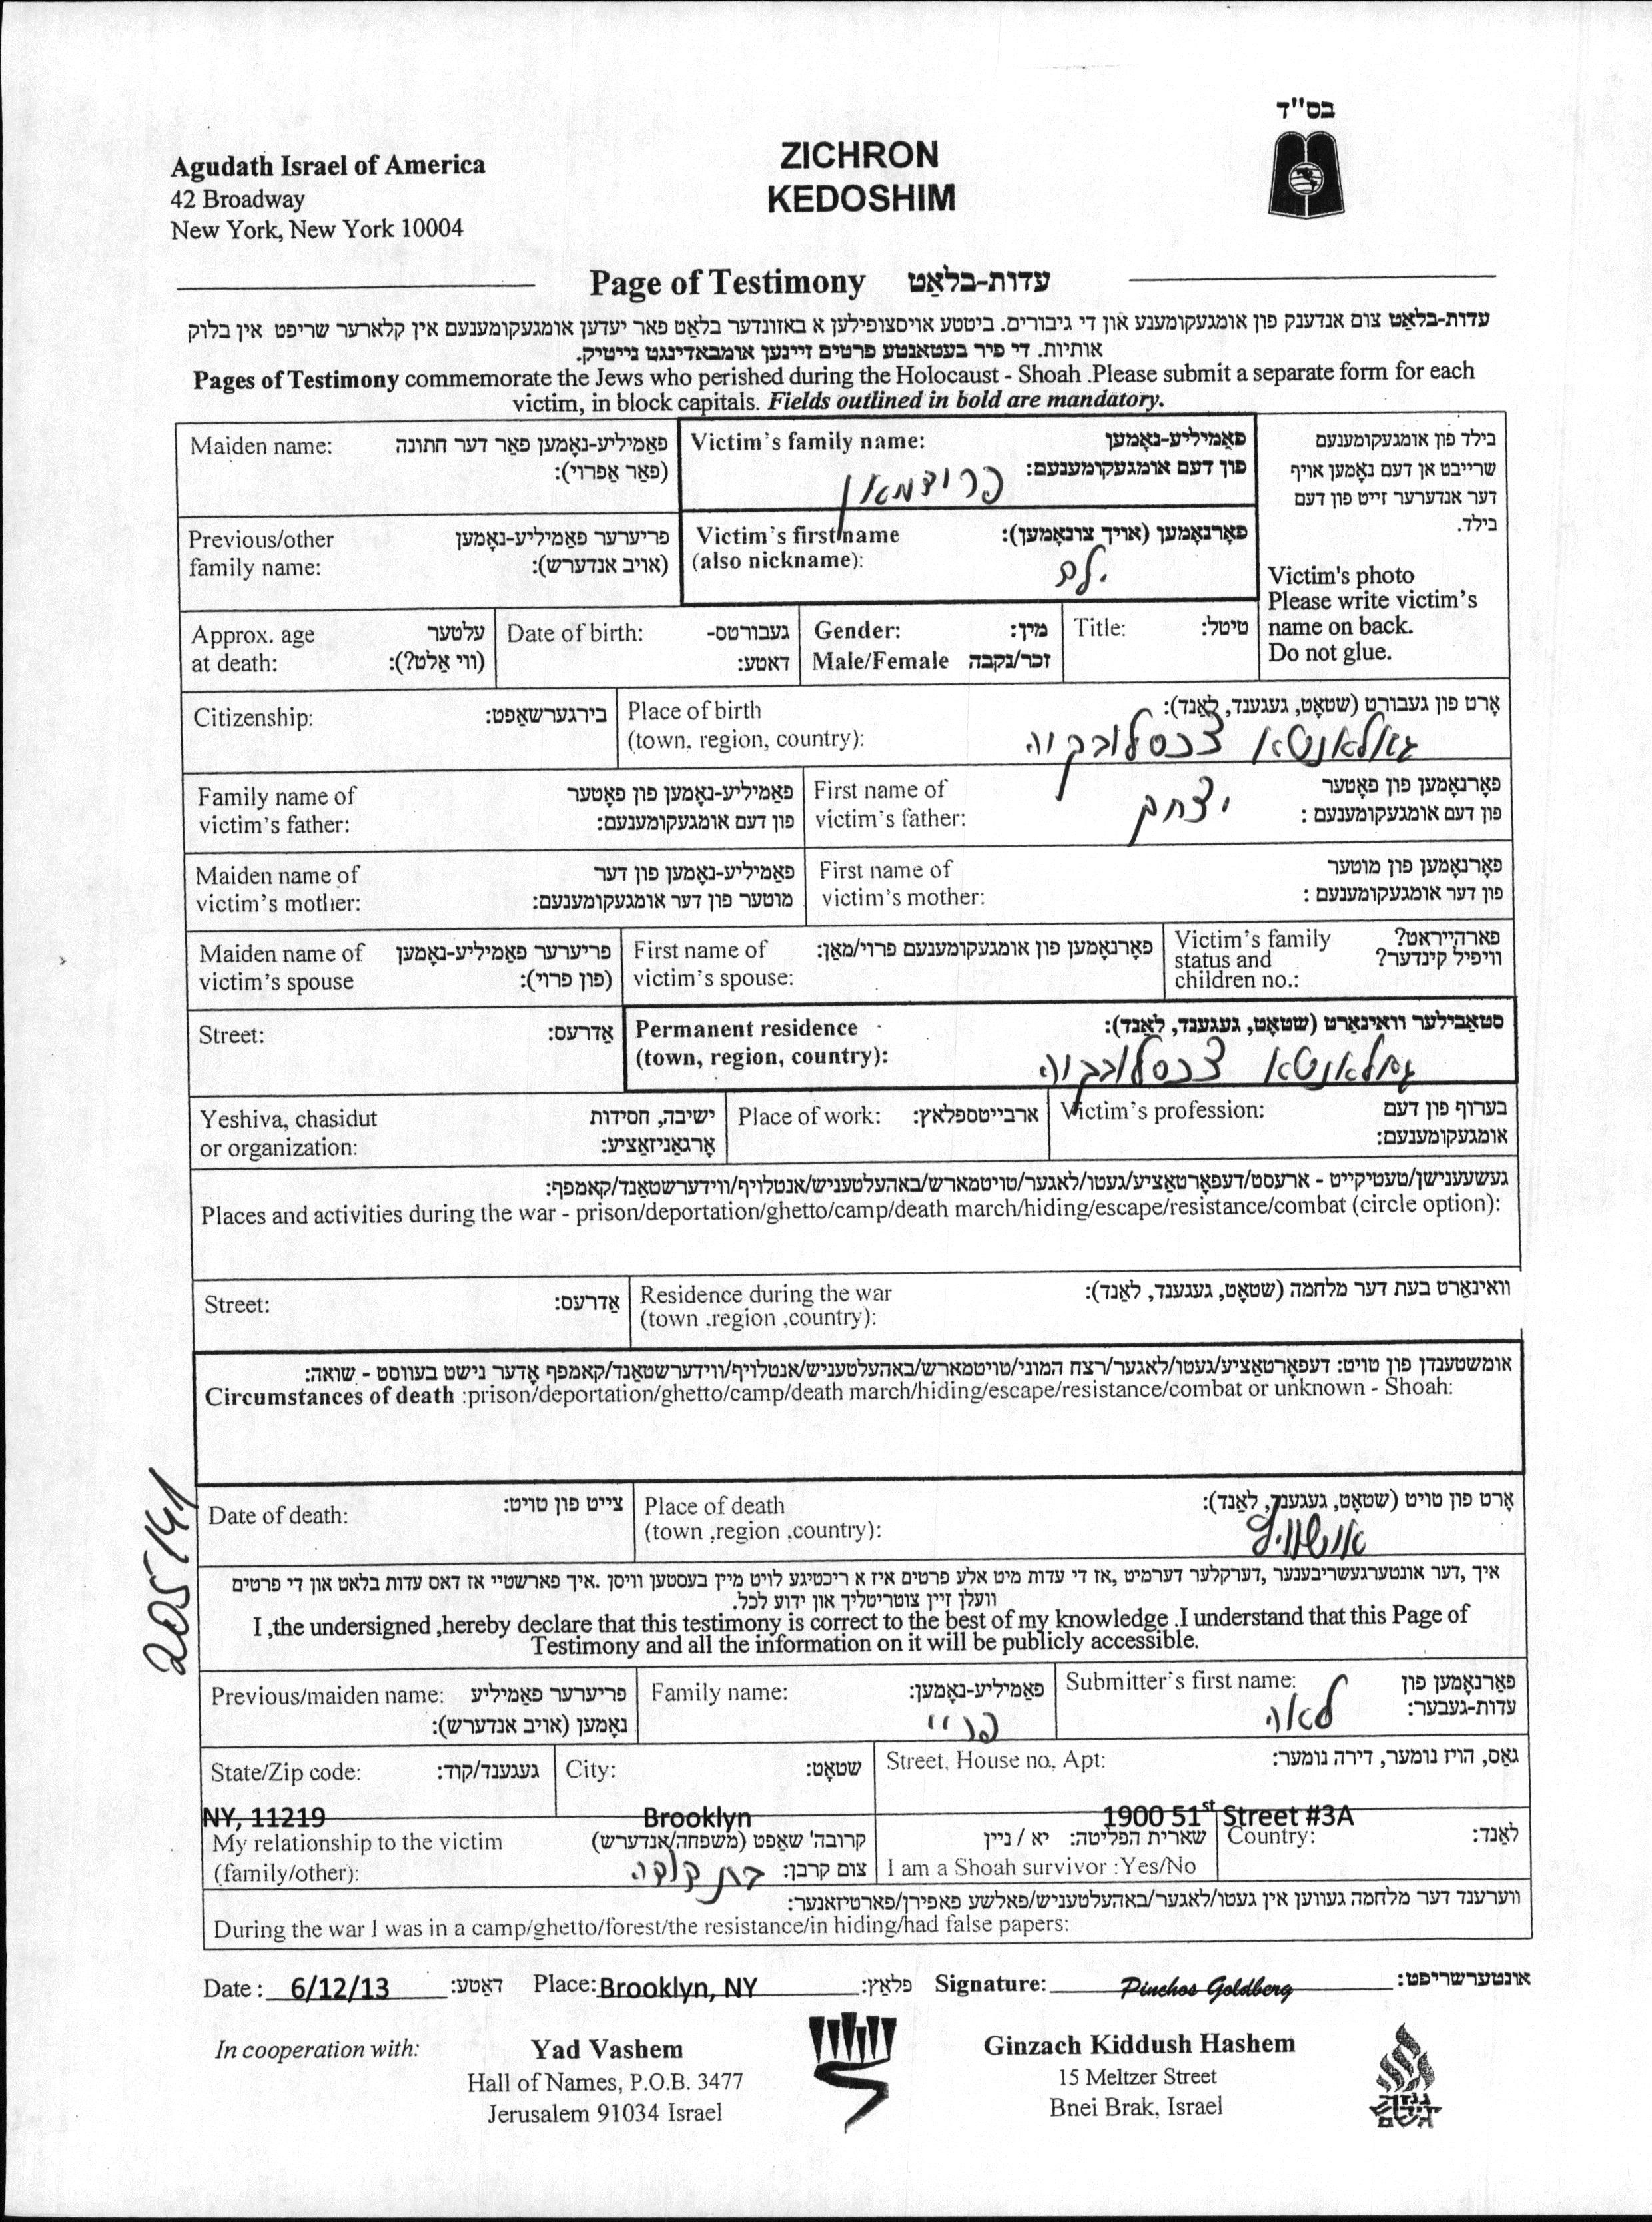 בס"ד
Agudath Israel of America
42 Broadway
New York, New York 10004
ZICHRON
KEDOSHIM
Page of Testimony עדות-בלאַט
עדות-בלאַט צום אנדענק פון אומגעקומענע און די גיבורים. ביטטע אויסצופילען א באזונדער בלאַט פאר יעדען אומגעקומענעם אין קלארער שריפט אין בלוק
אותיות. די פיר בעטאָנטע פרטים זיינען אומבאדינגט נייטיק.
Pages of Testimony commemorate the Jews who perished during the Holocaust - Shoah .Please submit a separate form for each
victim, in block capitals. Fields outlined in bold are mandatory.
Maiden name: פאַמיליע-נאָמען פאַר דער חתונה
(פאַר אַפרוי):
Victim's family name: פאַמיליע-נאָמען
פון דעם אומגעקומענעם:
פרוצמאן
בילד פון אומגעקומענעם
שרייבט אן דעם נאָמען אויף
דער אנדערער זייט פון דעם
בילד.
Victim's photo
Please write victim's
name on back.
Do not glue.
Previous/other פריערער פאַמיליע-נאָמען
family name: (אויב אנדערש):
Victim's first name פאָרנאָמען (אויך צונאָמען):
(also nickname):
Approx. age עלטער
at death: (ווי אַלט?):
Date of birth: געבורטס-
דאטע:
Gender: מין:
Male/Female זכר/נקבה
Title: טיטל:
Citizenship: בירגערשאַפט:
Place of birth אָרט פון געבורט (שטאָט, געגענד, לאַנד):
(town, region, country):
גאלאנטא צכסלובקיה
Family name of פאַמיליע-נאָמען פון פאָטער
victim's father: פון דעם אומגעקומענעם:
First name of פאָרנאָמען פון פאָטער
victim's father: פון דעם אומגעקומענעם :
יצחק
Maiden name of פאַמיליע-נאָמען פון דער
victim's mother: מוטער פון דער אומגעקומענעם:
First name of פאָרנאָמען פון מוטער
victim's mother: פון דער אומגעקומענעם :
Maiden name of פריערער פאַמיליע-נאָמען
victim's spouse (פון פרוי):
First name of פאָרנאָמען פון אומגעקומענעם פרוי/מאַן:
victim's spouse:
Victim's family פארהייראט?
status and וויפיל קינדער?
children no.:
Street: אַדרעס:
Permanent residence סטאַבילער וואינאָרט (שטאָט, געגענד, לאַנד):
(town, region, country):
גאלאנטא צכסלובקיה
Yeshiva, chasidut ישיבה, חסידות
or organization: אָרגאַניזאַציע:
Place of work: ארבייטספלאץ:
Victim's profession: בערוף פון דעם
אומגעקומענעם:
געשעענישן/טעטיקייט - ארעסט/דעפאָרטאַציע/געטו/לאגער/טויטמארש/באהעלטעניש/אנטלויף/ווידערשטאַנד/קאמפף:
Places and activities during the war - prison/deportation/ghetto/camp/death march/hiding/escape/resistance/combat (circle option):
Street: אַדרעס:
Residence during the war וואינאַרט בעת דער מלחמה (שטאָט, געגענד, לאַנד):
(town .region ,country):
אומשטענדן פון טויט: דעפאָרטאַציע/געטו/לאגער/רצח המוני/טויטמארש/באהעלטעניש/אנטלויף/ווידערשטאַנד/קאמפף אָדער נישט בעווסט - שואה:
Circumstances of death :prison/deportation/ghetto/camp/death march/hiding/escape/resistance/combat or unknown - Shoah:
205141
Date of death: צייט פון טויט:
Place of death אָרט פון טויט (שטאָט, געגענד, לאַנד):
(town ,region ,country):
אושוויץ
איך ,דער אונטערגעשריבענער ,דערקלער דערמיט ,אז די עדות מיט אלע פרטים איז א ריכטיגע לויט מיין בעסטען וויסן .איך פארשטיי אז דאס עדות בלאט און די פרטים
וועלן זיין צוטריטליך און ידוע לכל.
I ,the undersigned ,hereby declare that this testimony is correct to the best of my knowledge .I understand that this Page of
Testimony and all the information on it will be publicly accessible.
Previous/maiden name: פריערער פאַמיליע
נאָמען (אויב אנדערש):
Family name: פאַמיליע-נאָמען:
פריי
Submitter's first name: פאָרנאָמען פון
עדות-געבער:
לאה
State/Zip code: געגענד/קוד:
City: שטאָט:
Street, House no, Apt: גאַס, הויז נומער, דירה נומער:
NY, 11219 Brooklyn 1900 51st Street #3A
My relationship to the victim קרובה' שאַפט (משפחה/אנדערש)
(family/other): צום קרבן: בת דודה
שארית הפליטה: יא / ניין
I am a Shoah survivor :Yes/No
Country: לאַנד:
ווערענד דער מלחמה געווען אין געטו/לאגער/באהעלטעניש/פאלשע פאפירן/פארטיזאנער:
During the war I was in a camp/ghetto/forest/the resistance/in hiding/had false papers:
Date : 6/12/13 דאטע: Place: Brooklyn, NY פלאַץ: Signature: Pinchos Goldberg אונטערשריפט:
In cooperation with:
Yad Vashem
Hall of Names, P.O.B. 3477
Jerusalem 91034 Israel
Ginzach Kiddush Hashem
15 Meltzer Street
Bnei Brak, Israel
גנזך
קידוש
השם